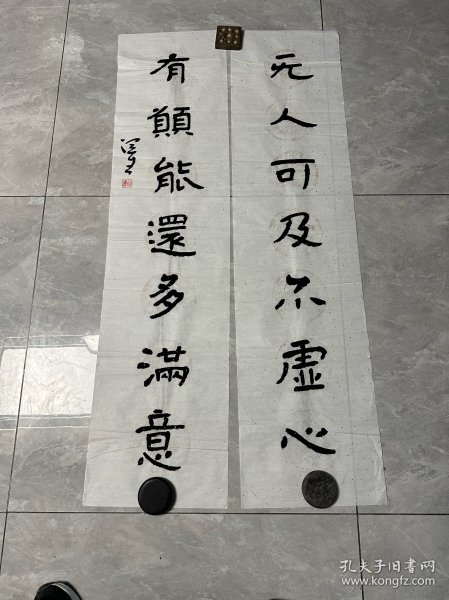 无人可及不虚心
有顛能還多滿意
孔夫子旧书网
www.kongfz.com